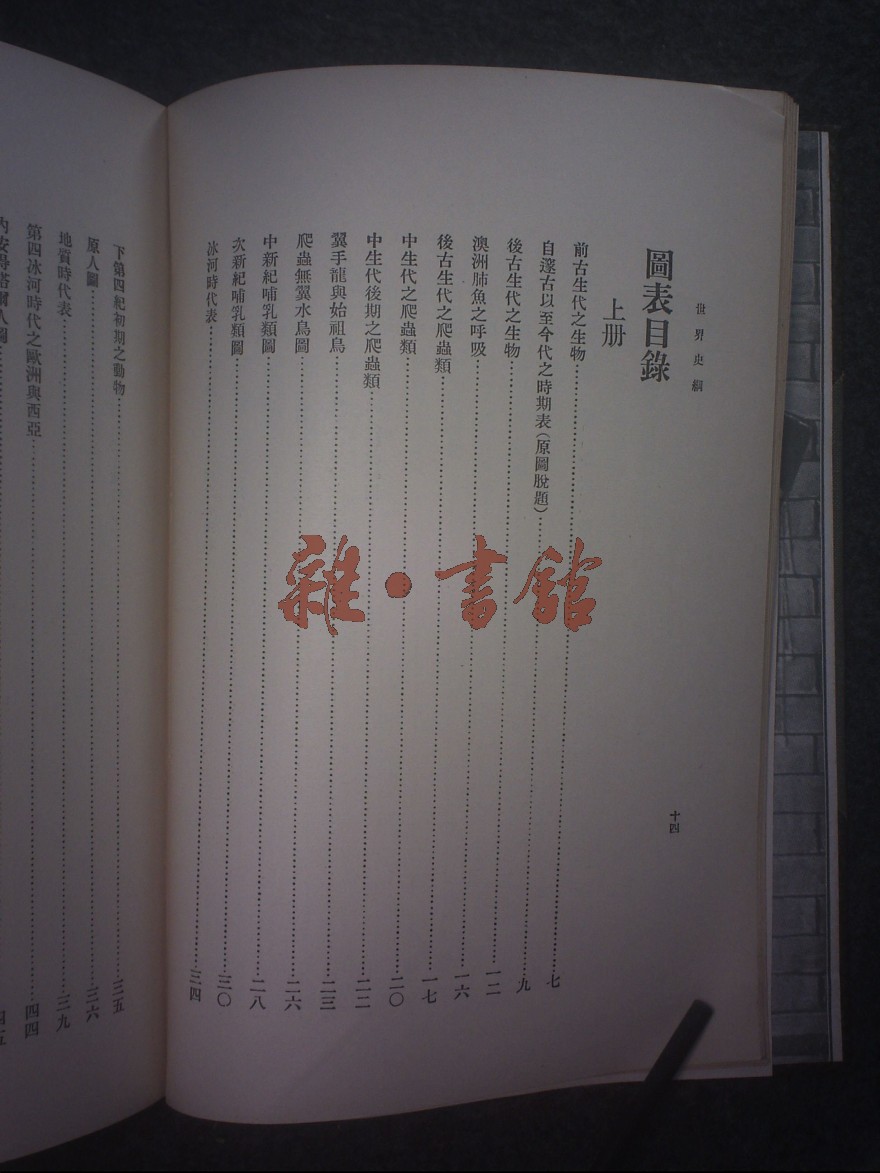 世界史綱
十四
圖表目錄
上册
前古生代之生物……七
自邃古以至今代之時期表(原圖脫題)……九
後古生代之生物……一二
澳洲肺魚之呼吸……一六
後古生代之爬蟲類……一七
中生代之爬蟲類……二〇
中生代後期之爬蟲類……二二
翼手龍與始祖鳥……二三
爬蟲無翼水鳥圖……二六
中新紀哺乳類圖……二八
次新紀哺乳類圖……三〇
冰河時代表……三四
下第四紀初期之動物……三五
原人圖……三六
地質時代表……三九
第四冰河時代之歐洲與西亞……四四
雜·書館